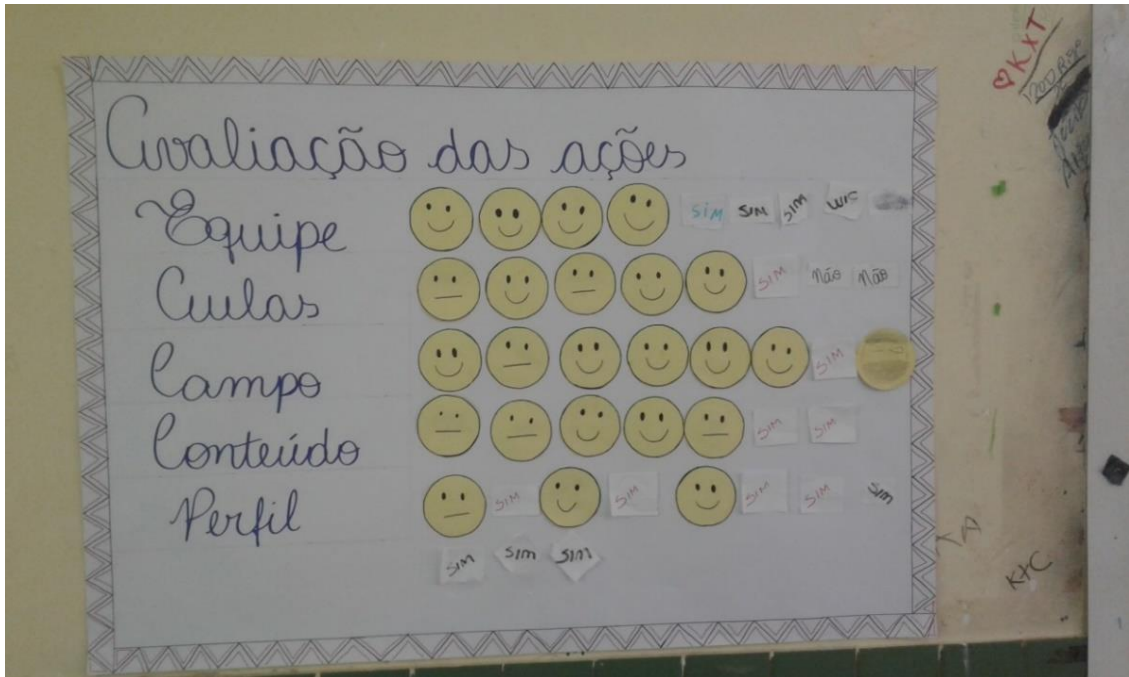 Avaliação das ações
Equipe SIM SIM SIM SIM
Aulas SIM Não Não
Campo SIM
Conteúdo SIM SIM
Perfil SIM SIM SIM SIM SIM
SIM SIM SIM
KXT
K+C